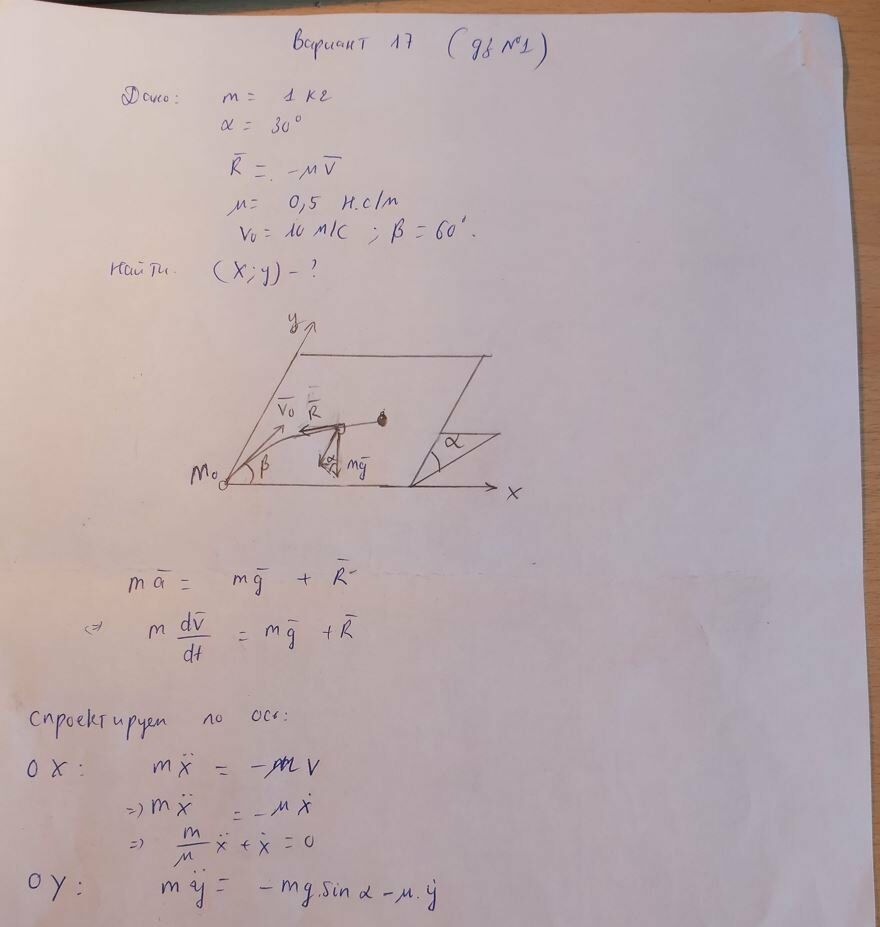 Вариант 17 (дз №1)
Дано: m = 1 кг
α = 30°
R̅ = -μV̅
μ = 0,5 Н.с/м
V₀ = 10 м/с ; β = 60°.
Найти. (x; y) - ?
y
V̅₀ R̅
α
M₀ β α mg̅
x
ma̅ = mg̅ + R̅
⇔ m dv̅/dt = mg̅ + R̅
Спроектируем по ось:
OX: mẍ = -μV
=> mẍ = -μẋ
=> m/μ ẍ + ẋ = 0
OY: mÿ = -mg.sin α - μ.ẏ